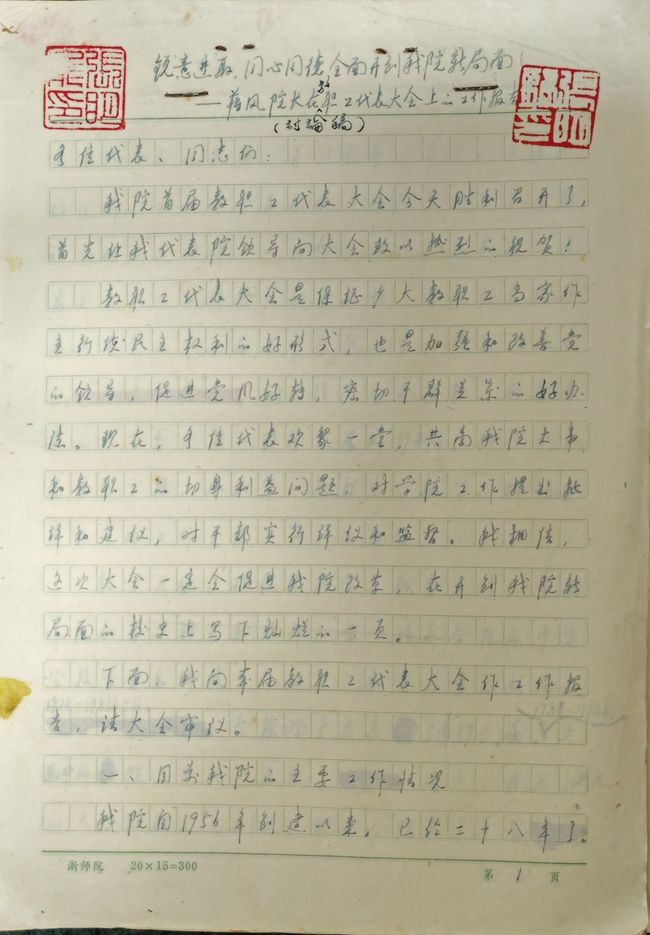 锐意进取,同心同德全面开创我院新局面!
——蒋风院长在教职工代表大会上的工作报告
(討論稿)
各位代表、同志们:
我院首届教职工代表大会今天胜利召开了,
首先让我代表院领导向大会致以热烈的祝贺!
教职工代表大会是保证广大教职工当家作
主行使民主权利的好形式,也是加强和改善党
的领导,促进党风好转,密切干群关系的好办
法。现在,各位代表欢聚一堂,共商我院大事
和教职工的切身利益问题,对学院工作提出批
评和建议,对干部实行评议和监督。我相信,
这次大会一定会促进我院改革,在开创我院新
局面的校史上写下灿烂的一页。
下面,我向本届教职工代表大会作工作报
告,请大会审议。
一、目前我院的主要工作情况
我院自1956年创建以来,已经二十八年了。
浙师院 20×15=300
第 1 页